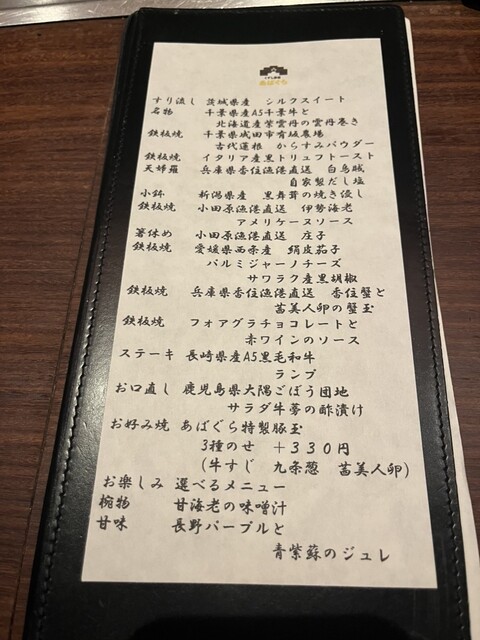 あばぐら
すり流し 茨城県産 シルクスイート
名物 千葉県産A5千葉牛と
北海道産紫雲丹の雲丹巻き
鉄板焼 千葉県成田市有坂農場
古代蓮根 からすみパウダー
鉄板焼 イタリア産黒トリュフトースト
天婦羅 兵庫県香住漁港直送 白烏賊
自家製だし塩
小鉢 新潟県産 黒舞茸の焼き浸し
鉄板焼 小田原漁港直送 伊勢海老
アメリケーヌソース
箸休め 小田原漁港直送 庄子
鉄板焼 愛媛県西条産 絹皮茄子
パルミジャーノチーズ
サワラク産黒胡椒
鉄板焼 兵庫県香住漁港直送 香住蟹と
茜美人卵の蟹玉
鉄板焼 フォアグラチョコレートと
赤ワインのソース
ステーキ 長崎県産A5黒毛和牛
ランプ
お口直し 鹿児島県大隅ごぼう団地
サラダ牛蒡の酢漬け
お好み焼 あばぐら特製豚玉
3種のせ +330円
(牛すじ 九条葱 茜美人卵)
お楽しみ 選べるメニュー
椀物 甘海老の味噌汁
甘味 長野パープルと
青紫蘇のジュレ